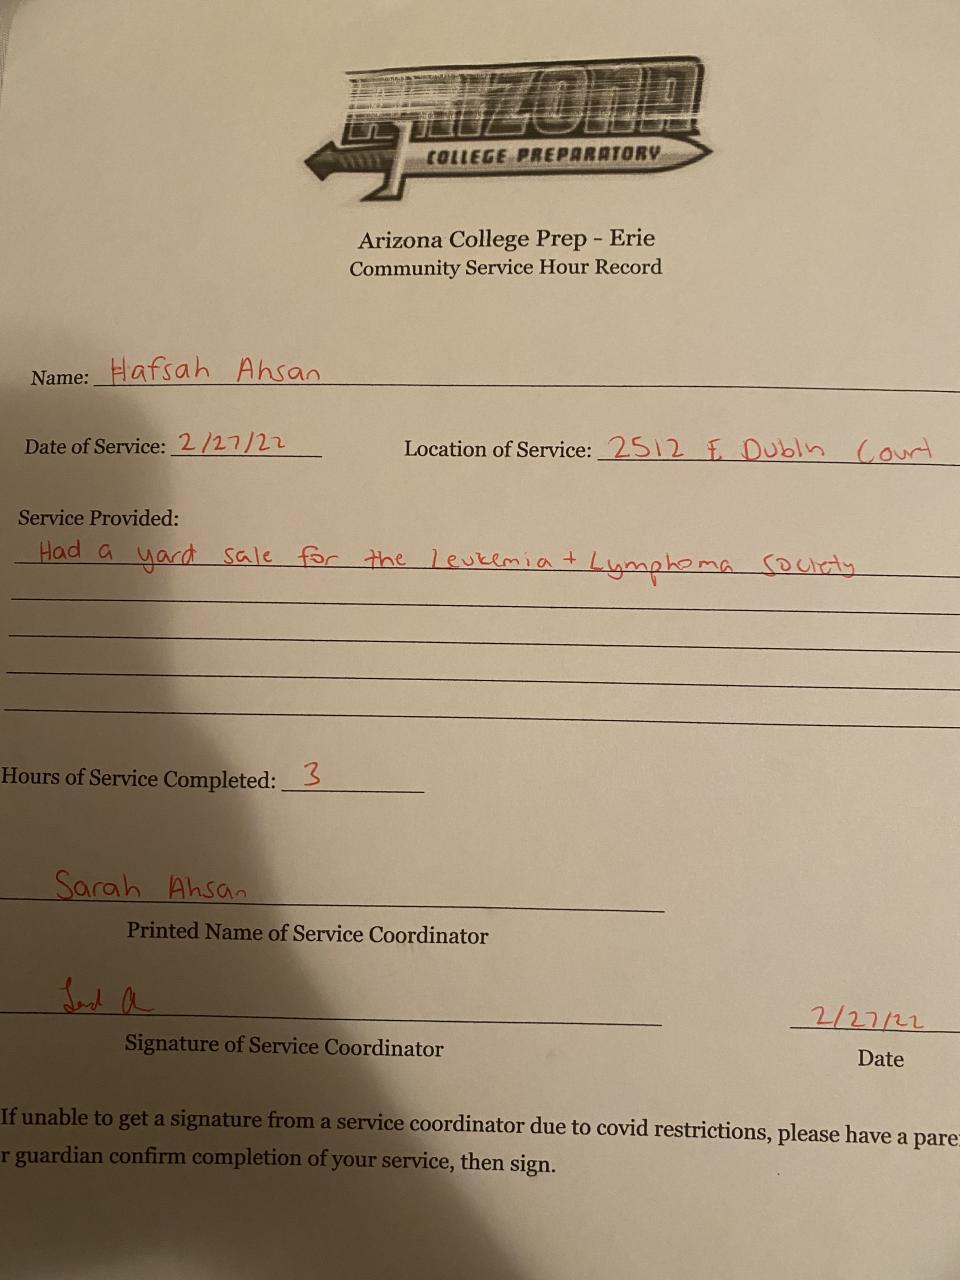 ARIZONA
COLLEGE PREPARATORY
Arizona College Prep - Erie
Community Service Hour Record
Name: Hafsah Ahsan
Date of Service: 2/27/22 Location of Service: 2512 E Dubln Court
Service Provided:
Had a yard sale for the Leukemia + Lymphoma Society
Hours of Service Completed: 3
Sarah Ahsan
Printed Name of Service Coordinator
2/27/22
Signature of Service Coordinator Date
If unable to get a signature from a service coordinator due to covid restrictions, please have a pare
r guardian confirm completion of your service, then sign.